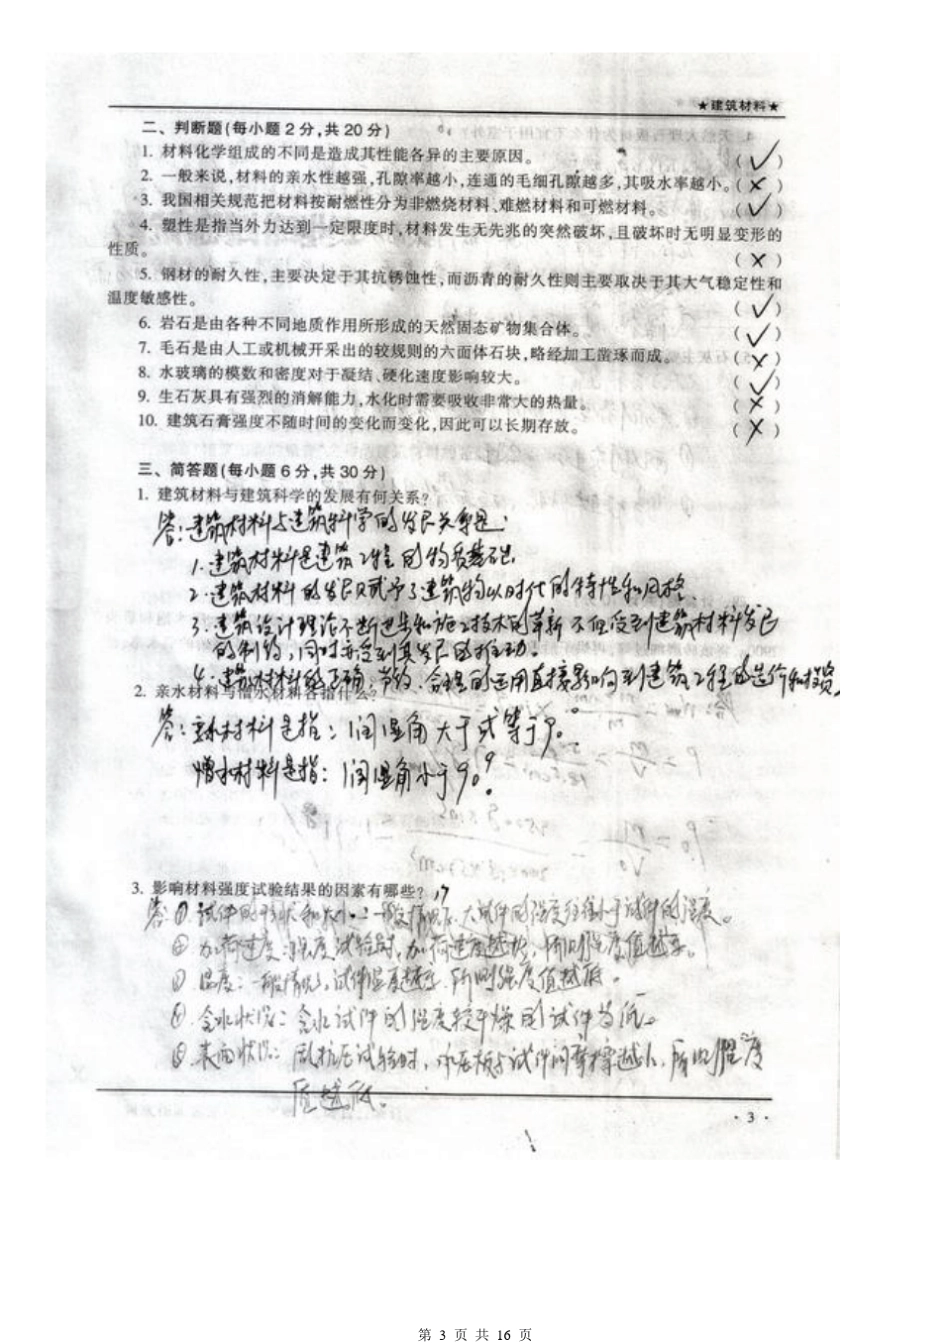 ★建筑材料★
二、判断题(每小题2分,共20分)
1. 材料化学组成的不同是造成其性能各异的主要原因。 (✓)
2. 一般来说,材料的亲水性越强,孔隙率越小,连通的毛细孔隙越多,其吸水率越小。(×)
3. 我国相关规范把材料按耐燃性分为非燃烧材料、难燃材料和可燃材料。 (✓)
4. 塑性是指当外力达到一定限度时,材料发生无先兆的突然破坏,且破坏时无明显变形的
性质。 (×)
5. 钢材的耐久性,主要决定于其抗锈蚀性,而沥青的耐久性则主要取决于其大气稳定性和
温度敏感性。 (✓)
6. 岩石是由各种不同地质作用所形成的天然固态矿物集合体。 (✓)
7. 毛石是由人工或机械开采出的较规则的六面体石块,略经加工凿琢而成。 (×)
8. 水玻璃的模数和密度对于凝结、硬化速度影响较大。 (✓)
9. 生石灰具有强烈的消解能力,水化时需要吸收非常大的热量。 (×)
10. 建筑石膏强度不随时间的变化而变化,因此可以长期存放。 (×)
三、简答题(每小题6分,共30分)
1. 建筑材料与建筑科学的发展有何关系?
答:建筑材料与建筑科学的发展关系是:
1.建筑材料是建筑工程的物质基础.
2.建筑材料的发展赋予了建筑物以时代的特性和风格.
3.建筑设计理论不断进步和施工技术的革新不但受到建筑材料发展
的制约,同时亦受到其发展的推动。
4.建筑材料的正确、节约、合理的运用直接影响到建筑工程的造价和投资。
2. 亲水材料与憎水材料各指什么?
答:亲水材料是指:润湿角大于或等于90°
憎水材料是指:润湿角小于90°。
3. 影响材料强度试验结果的因素有哪些?
答①.试件的形状和大小:一般情况下.大试件的强度往往小于小试件的强度。
②加荷速度:强度试验时,加荷速度越快,所测强度值越高。
③.温度:一般情况,试件温度越高.所测强度值越低。
④.含水状况:含水试件的强度较干燥的试件为低。
⑤.表面状况:做抗压试验时,承压板与试件间摩擦越小.所测强度
值越低.
·3·
第 3 页 共 16 页